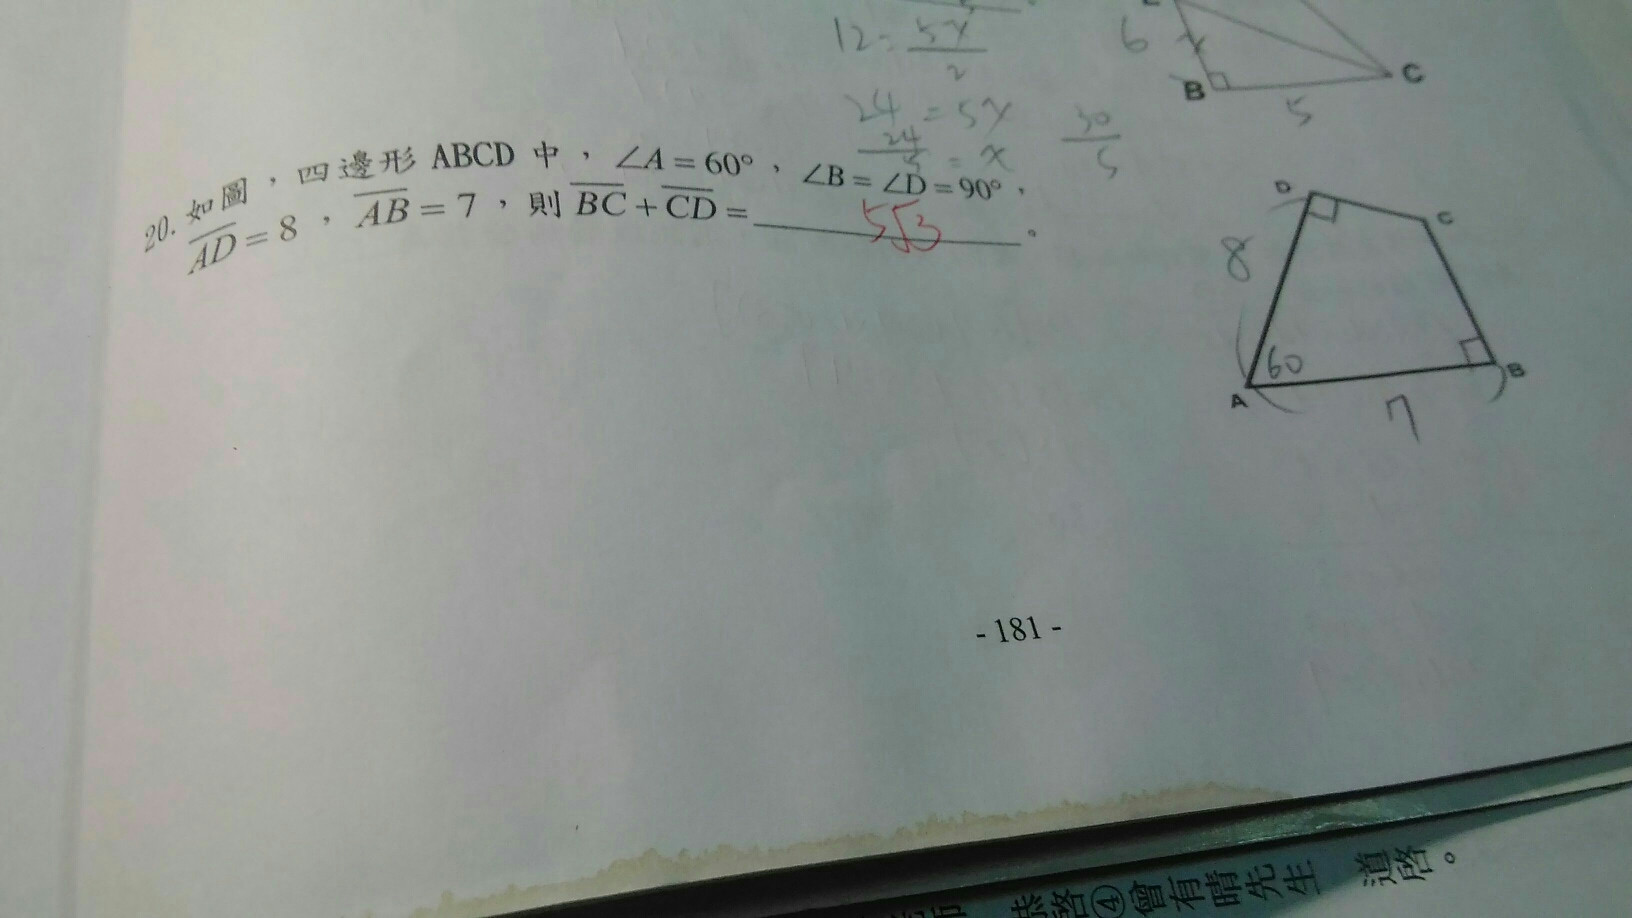 12 = 5x/2
24 = 5x
24/5 = x
30/5
6
x
B
5
C
20. 如圖，四邊形 ABCD 中，∠A = 60°，∠B = ∠D = 90°，
AD = 8，AB = 7，則 BC + CD = 5√3。
D
C
8
60
A
B
7
- 181 -
恭啓④曾有晴先生 道啓。